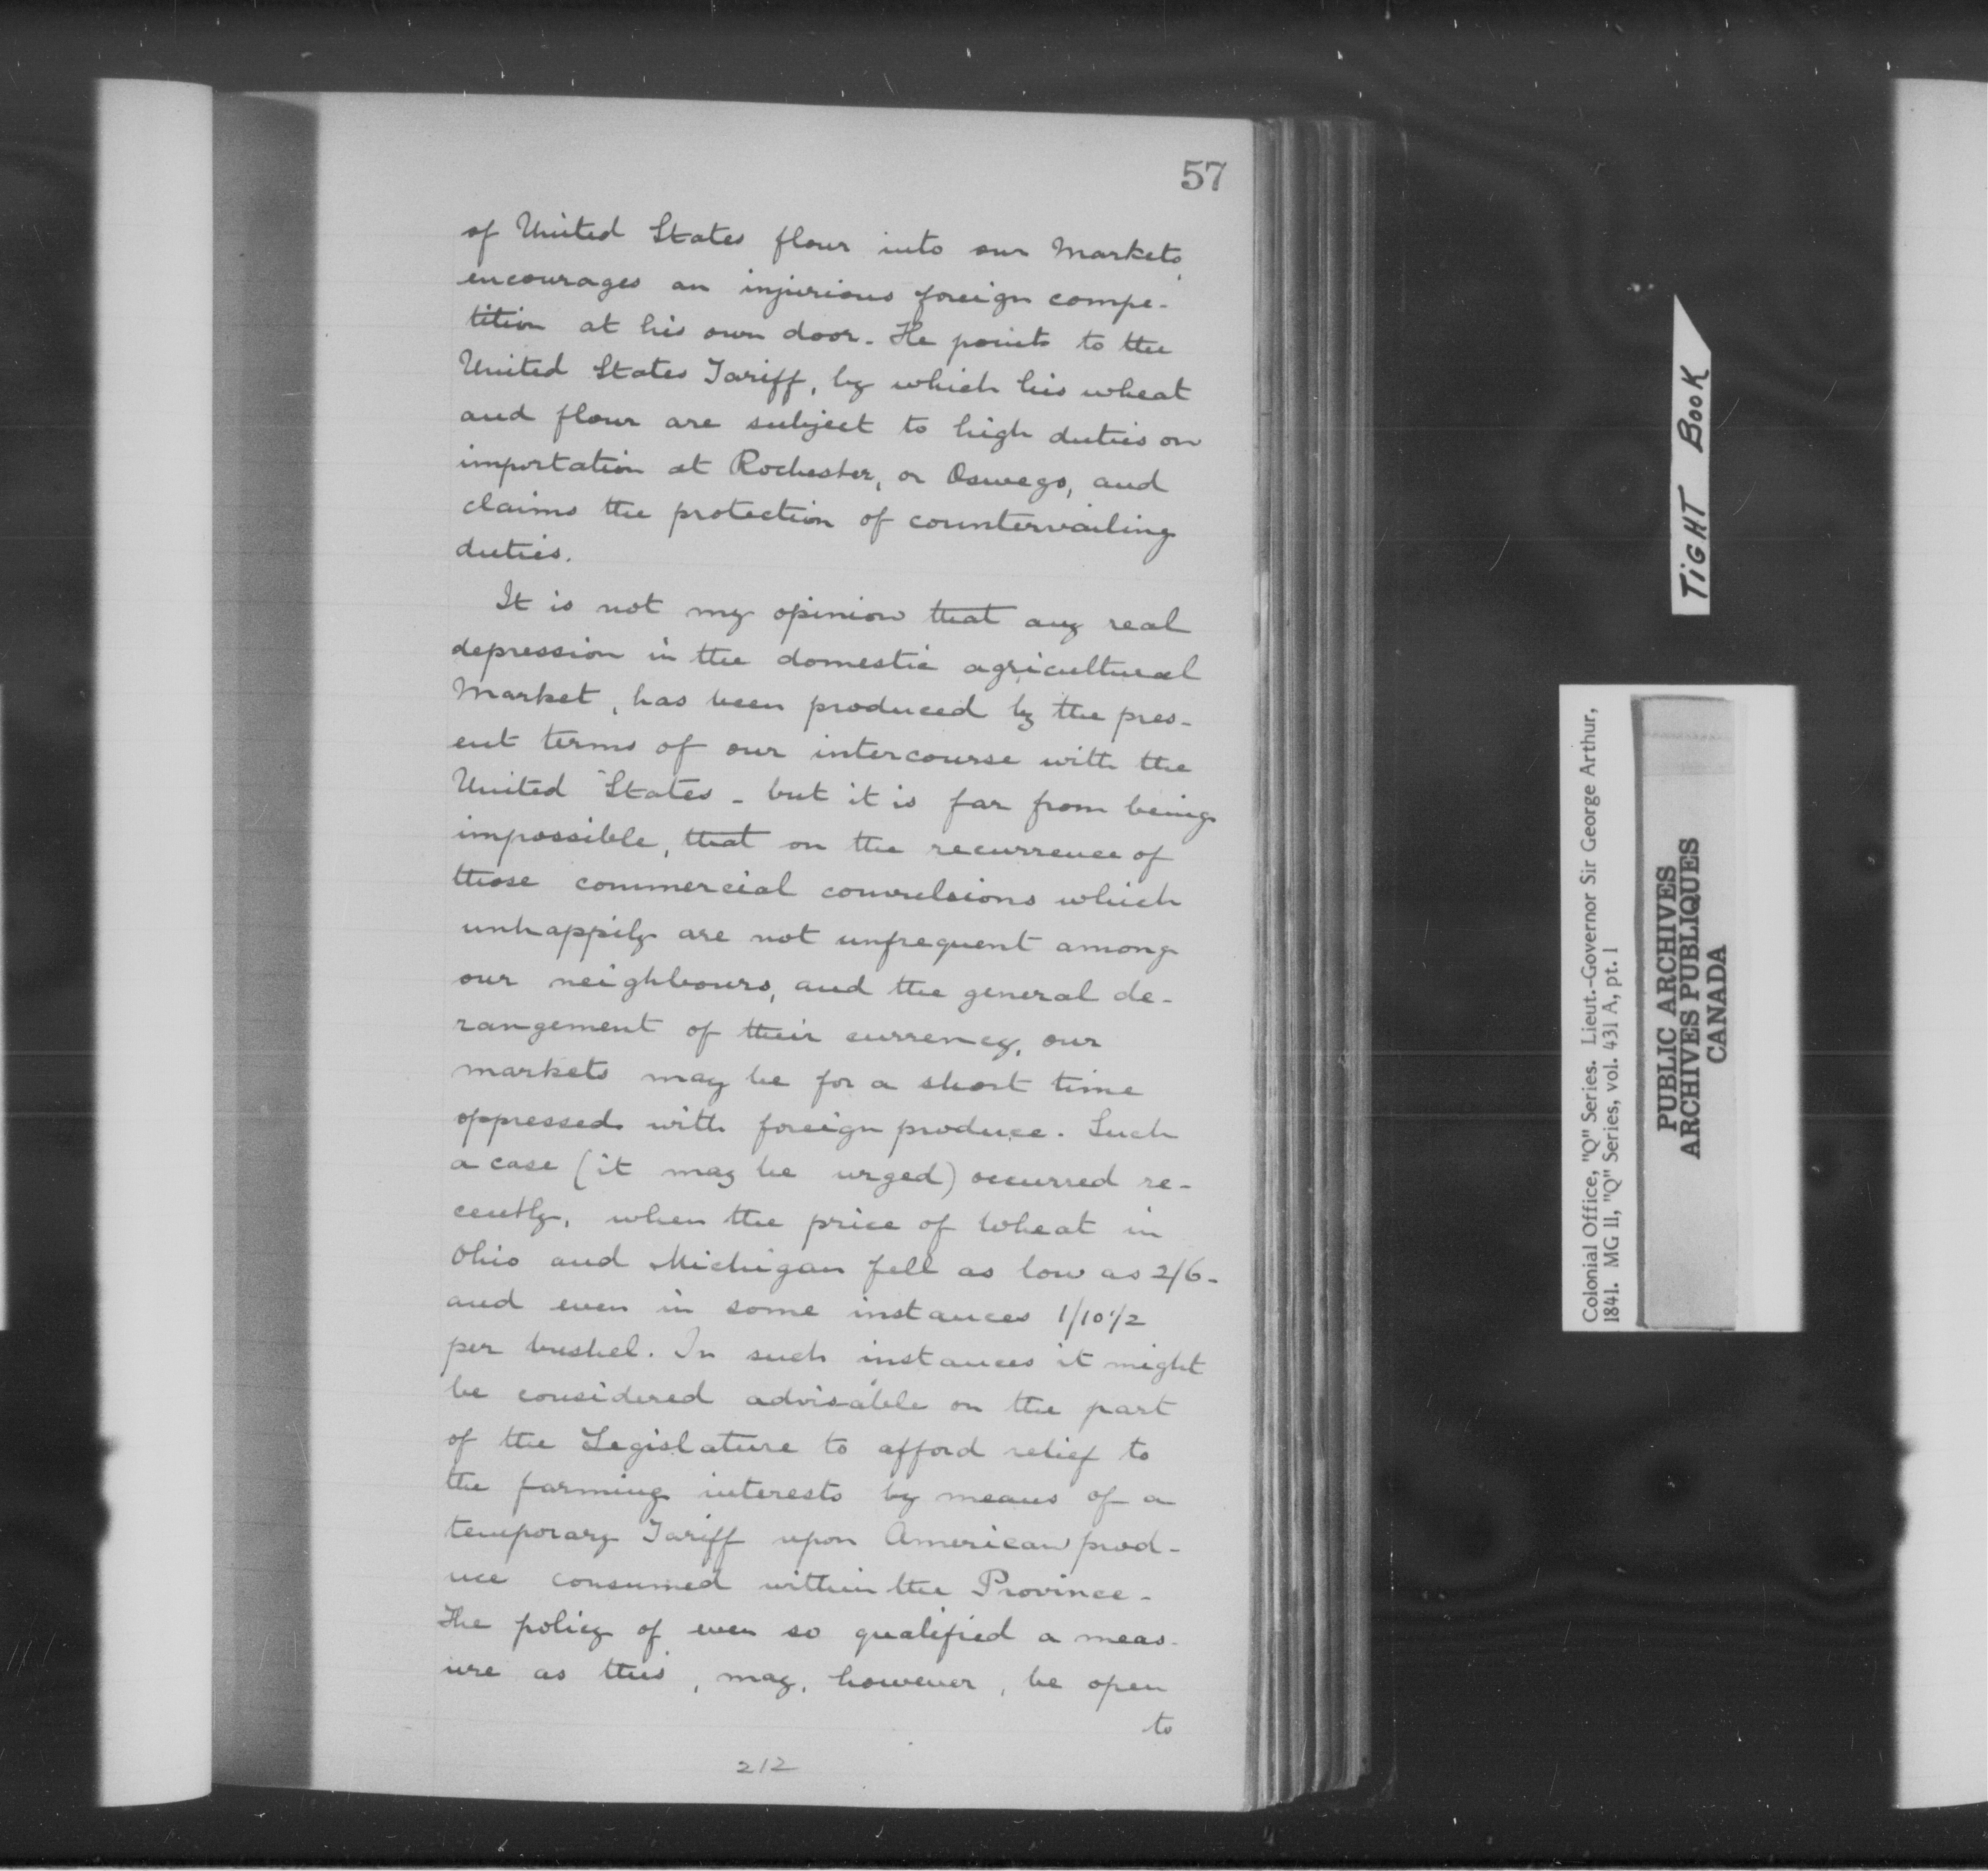 57
of United States flour into our Markets,
encourages an injurious foreign compe-
tition at his own door. He points to the
United States Tariff, by which his wheat
and flour are subject to high duties on
importation at Rochester, or Oswego, and
claims the protection of countervailing
duties.
It is not my opinion that any real
depression in the domestic agricultural
Market, has been produced by the pres-
ent terms of our intercourse with the
United States - but it is far from being
impossible, that on the recurrence of
those commercial convulsions which
unhappily are not unfrequent among
our neighbours, and the general de-
rangement of their currency, our
markets may be for a short time
oppressed with foreign produce. Such
a case (it may be urged) occurred re-
cently, when the price of Wheat in
Ohio and Michigan fell as low as 2/6-
and even in some instances 1/10 1/2
per bushel. In such instances it might
be considered advisable on the part
of the Legislature to afford relief to
the farming interests by means of a
temporary Tariff upon American prod-
uce consumed within the Province -
The policy of even so qualified a meas-
ure as this, may, however, be open
to
212
TIGHT BOOK
Colonial Office, "Q" Series. Lieut.-Governor Sir George Arthur,
1841. MG 11, "Q" Series, vol. 431 A, pt. 1
PUBLIC ARCHIVES
ARCHIVES PUBLIQUES
CANADA